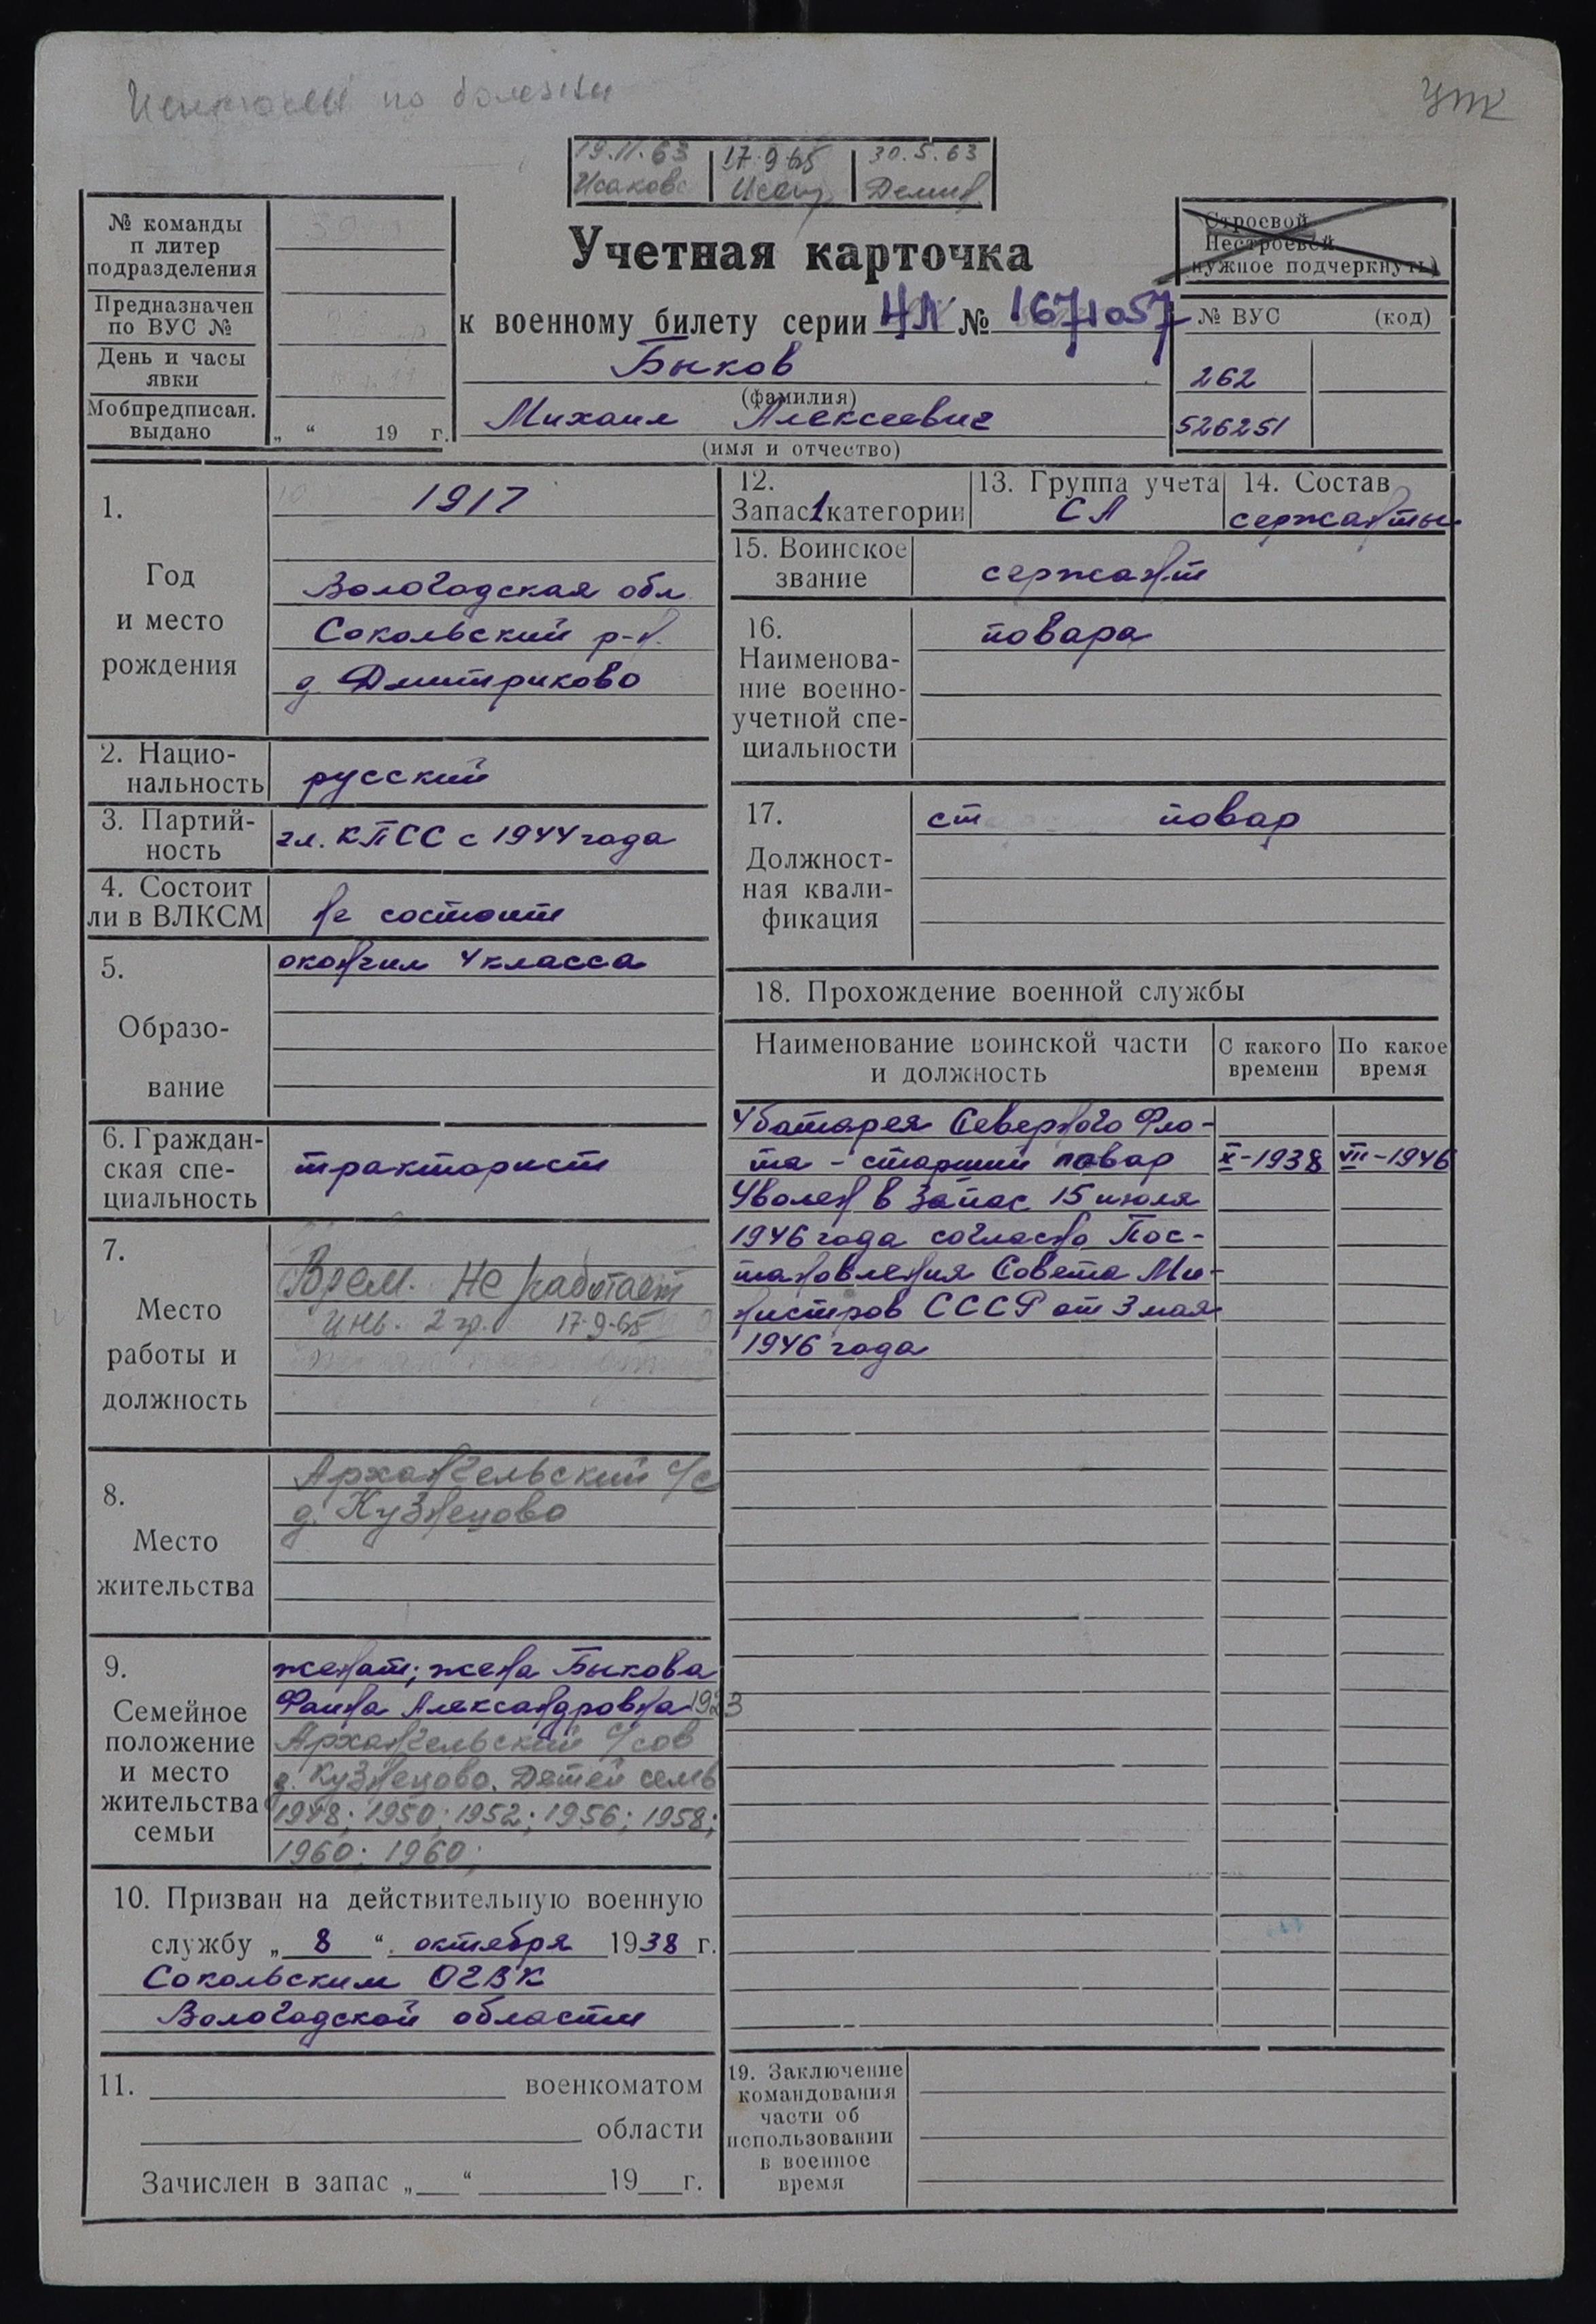 по болезни
УПК
19.11.63
17.9.65
30.5.63
Исакова
Демин
№ команды
п литер
подразделения
Предназначен
по ВУС №
День и часы
явки
Мобпредписан.
выдано
„ “ 19 г.
Учетная карточка
к военному билету серии НЛ № 1671057
Быков
(фамилия)
Михаил Алексеевич
(имя и отчество)
Строевой
Нестроевой
нужное подчеркнуть)
№ ВУС (код)
262
526251
1.
Год
и место
рождения
1917
Вологодская обл.
Сокольский р-н.
д Дмитриково
2. Нацио-
нальность
русский
3. Партий-
ность
чл. КПСС с 1944 года
4. Состоит
ли в ВЛКСМ
не состоит
5.
Образо-
вание
окончил 4 класса
6. Граждан-
ская спе-
циальность
тракторист
7.
Место
работы и
должность
Врем. не работает
инв. 2 гр. 17-9-65
8.
Место
жительства
Архангельский с/с
д. Кузнецово
9.
Семейное
положение
и место
жительства
семьи
женат; жена Быкова
Фаина Александровна 1923
Архангельский с/сов
д. Кузнецово. Детей семь
1948; 1950; 1952; 1956; 1958;
1960; 1960;
10. Призван на действительную военную
службу „ 8 “ октября 1938 г.
Сокольским ОГВК
Вологодской области
11. военкоматом
области
Зачислен в запас „ “ 19 г.
12.
Запас 1 категории
13. Группа учета
СА
14. Состав
сержанты
15. Воинское
звание
сержант
16.
Наименова-
ние военно-
учетной спе-
циальности
повара
17.
Должност-
ная квали-
фикация
ст повар
18. Прохождение военной службы
Наименование воинской части
и должность
С какого
времени
По какое
время
4 батарея Северного Фло-
та - старший повар X-1938 VII-1946
Уволен в запас 15 июля
1946 года согласно Пос-
тановления Совета Ми-
нистров СССР от 3 мая
1946 года
19. Заключение
командования
части об
использовании
в военное
время